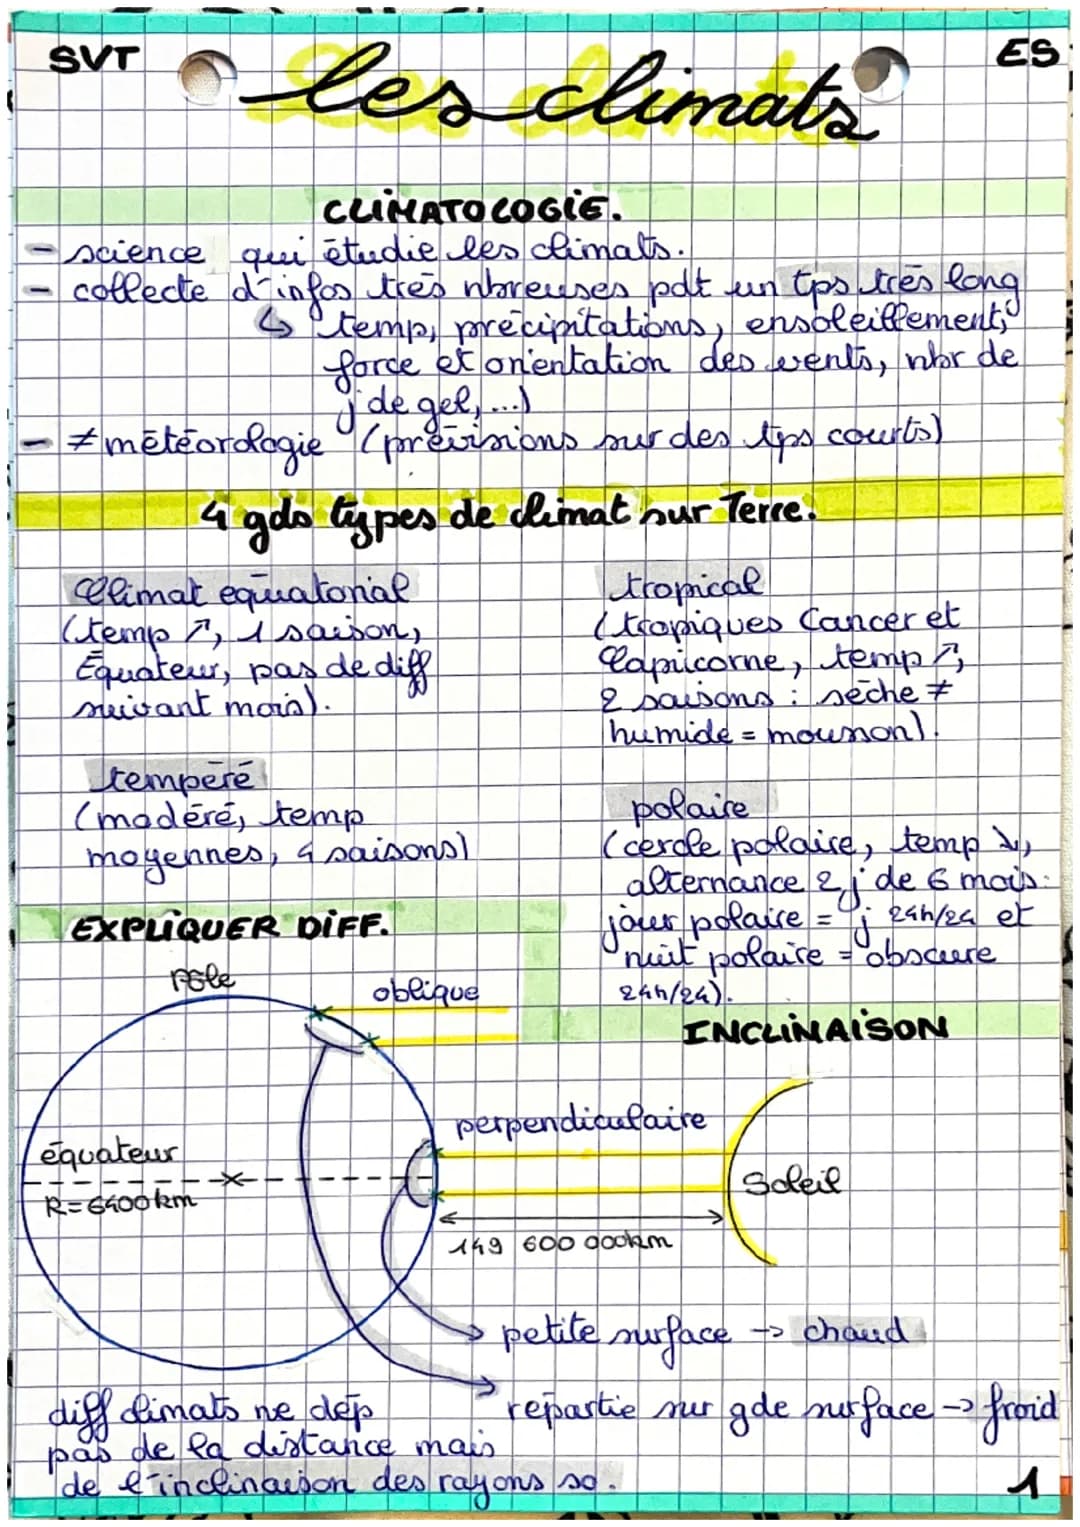 SVT
ES
les climats
CLIMATOLOGIE.
- science qui étudie les climats.
- collecte d'infos très nbreuses pdt un tps très long
↳ temp, précipitations, ensoleillement,
force et orientation des vents, nbr de
j de gel, ...)
- ≠ météorologie (prévisions sur des tps courts)
4 gds types de climat sur Terre.
Climat equatorial
(temp ↗, 1 saison,
Équateur, pas de diff
suivant mois).
tropical
(tropiques Cancer et
Capricorne, temp ↗,
2 saisons : sèche ≠
humide = mousson).
tempéré
(modéré, temp
moyennes, 4 saisons)
polaire
(cercle polaire, temp ↘,
alternance 2 j de 6 mois:
jour polaire = j 24h/24 et
nuit polaire = obscure
24h/24).
EXPLIQUER DIFF.
INCLINAISON
pôle
oblique
perpendiculaire
équateur
R=6400km
Soleil
149 600 000km
petite surface -> chaud
répartie sur gde surface -> froid
diff climats ne dép
pas de la distance mais
de l'inclinaison des rayons so.
1